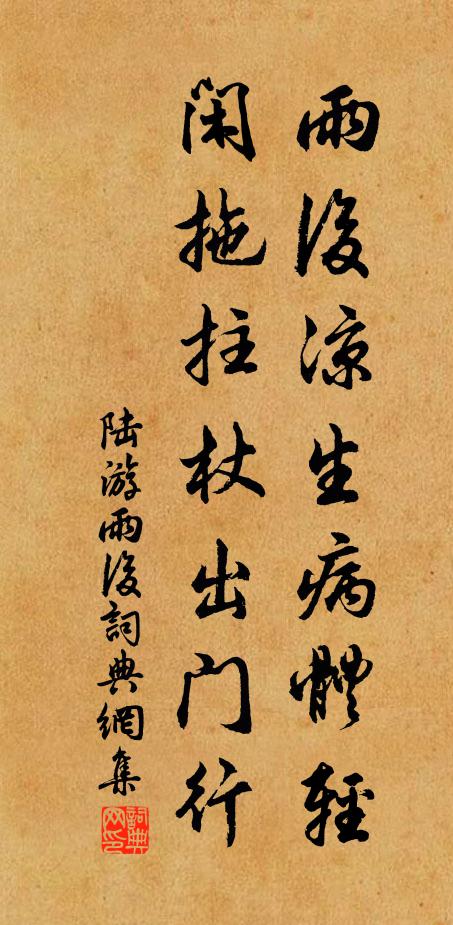 雨後涼生病體輕
閑拖拄杖出門行
陆游雨後詞典網集
詞典網印